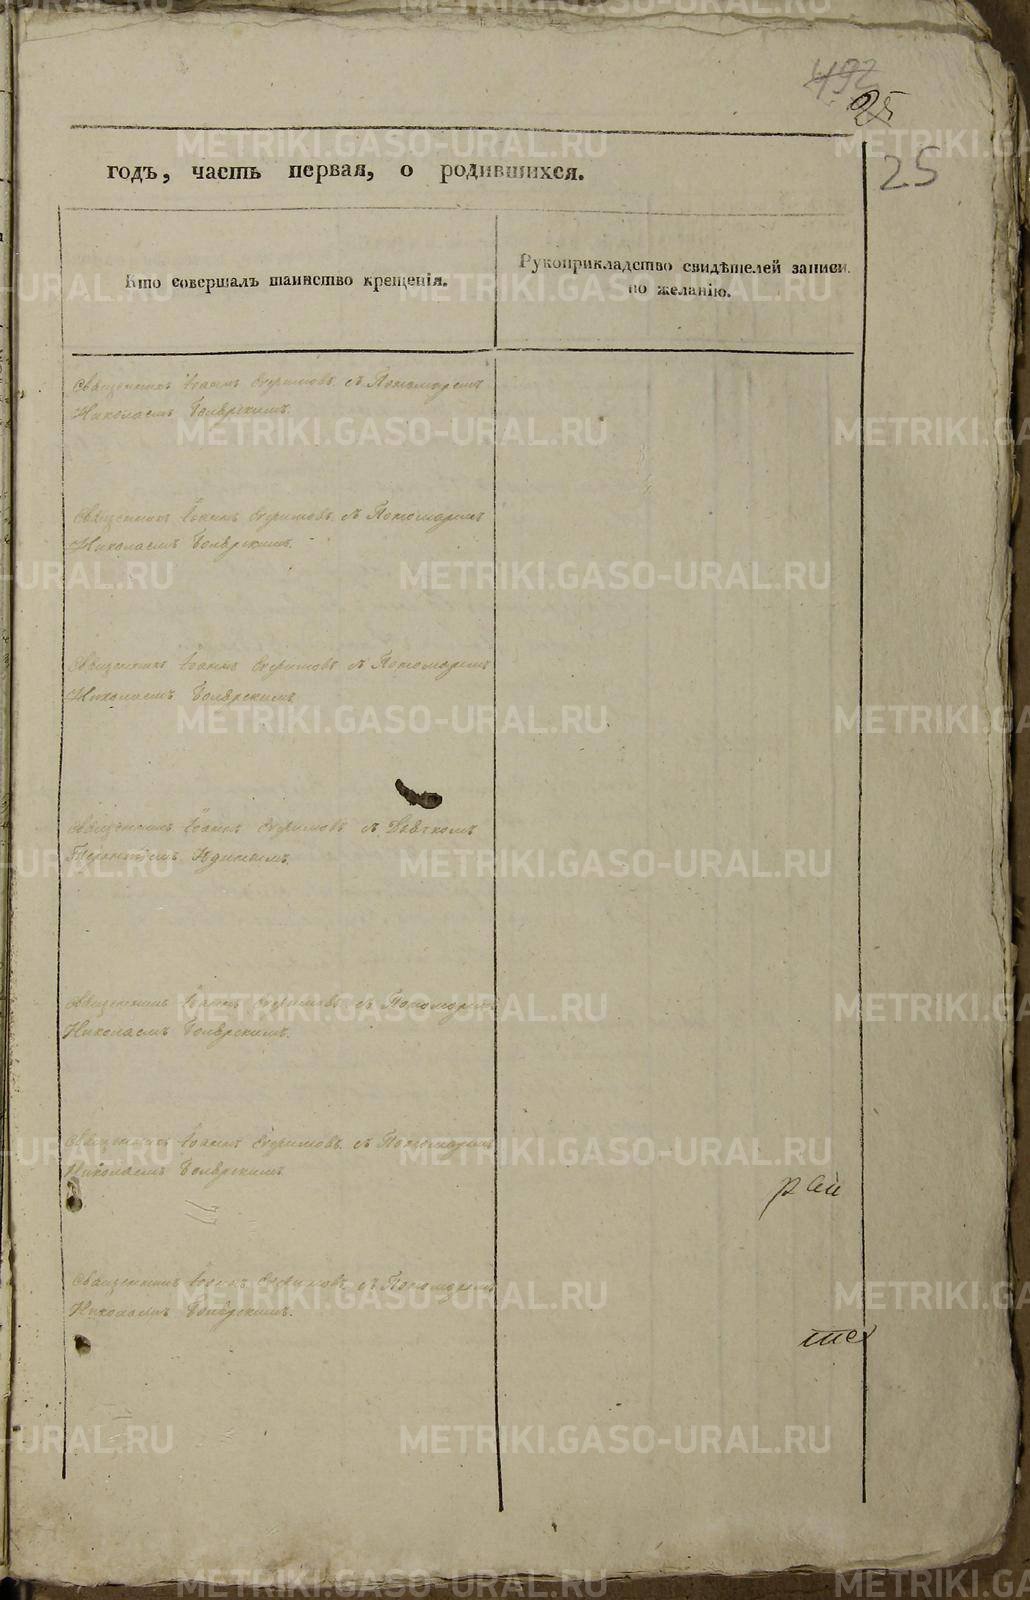 492
25
25
годъ, часть первая, о родившихся.
Кто совершалъ таинство крещенія.
Рукоприкладство свидѣтелей записи
по желанію.
Священникъ Іоаннъ Ефимовъ съ Пономаремъ
Николаемъ Боярскимъ.
Священникъ Іоаннъ Ефимовъ съ Пономаремъ
Николаемъ Боярскимъ.
Священникъ Іоаннъ Ефимовъ съ Пономаремъ
Николаемъ Боярскимъ
Священникъ Іоаннъ Ефимовъ съ Дьячкомъ
Терентіемъ
Священникъ Іоаннъ Ефимовъ съ Пономаремъ
Николаемъ Боярскимъ.
Священникъ Іоаннъ Ефимовъ съ Пономаремъ
Николаемъ Боярскимъ
Священникъ Іоаннъ Ефимовъ съ Пономаремъ
Николаемъ Боярскимъ.
METRIKI.GASO-URAL.RU